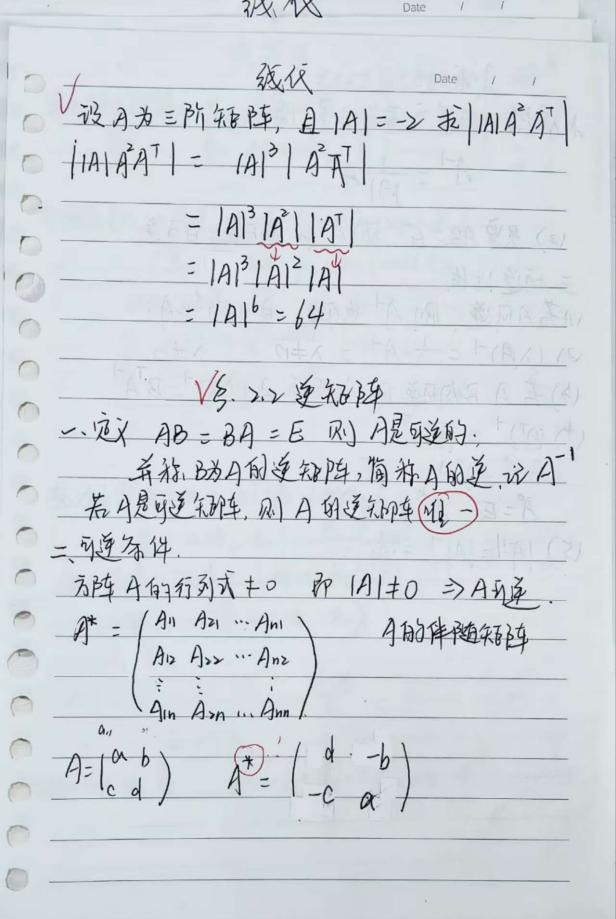 线代
Date / /
线代
Date / /
√ 设A为三阶矩阵,且|A|=-2 求||A|A²Aᵀ|
||A|A²Aᵀ| = |A|³|A²Aᵀ|
= |A|³|A²||Aᵀ|
↓ ↓
= |A|³|A|²|A|
= |A|⁶ = 64
√ §. 2.2 逆矩阵
一、定义 AB = BA = E 则 A是可逆的;
并称B为A的逆矩阵,简称A的逆,记A⁻¹
若A是可逆矩阵,则A的逆矩阵唯一
二、可逆条件.
方阵A的行列式≠0 即 |A|≠0 ⇒ A可逆.
A* = ( A₁₁ A₂₁ … Aₙ₁ A的伴随矩阵
A₁₂ A₂₂ … Aₙ₂
⋮ ⋮ ⋮
A₁ₙ A₂ₙ … Aₙₙ )
a₁₁
A = ( a b A* = ( d -b
c d ) -c a )